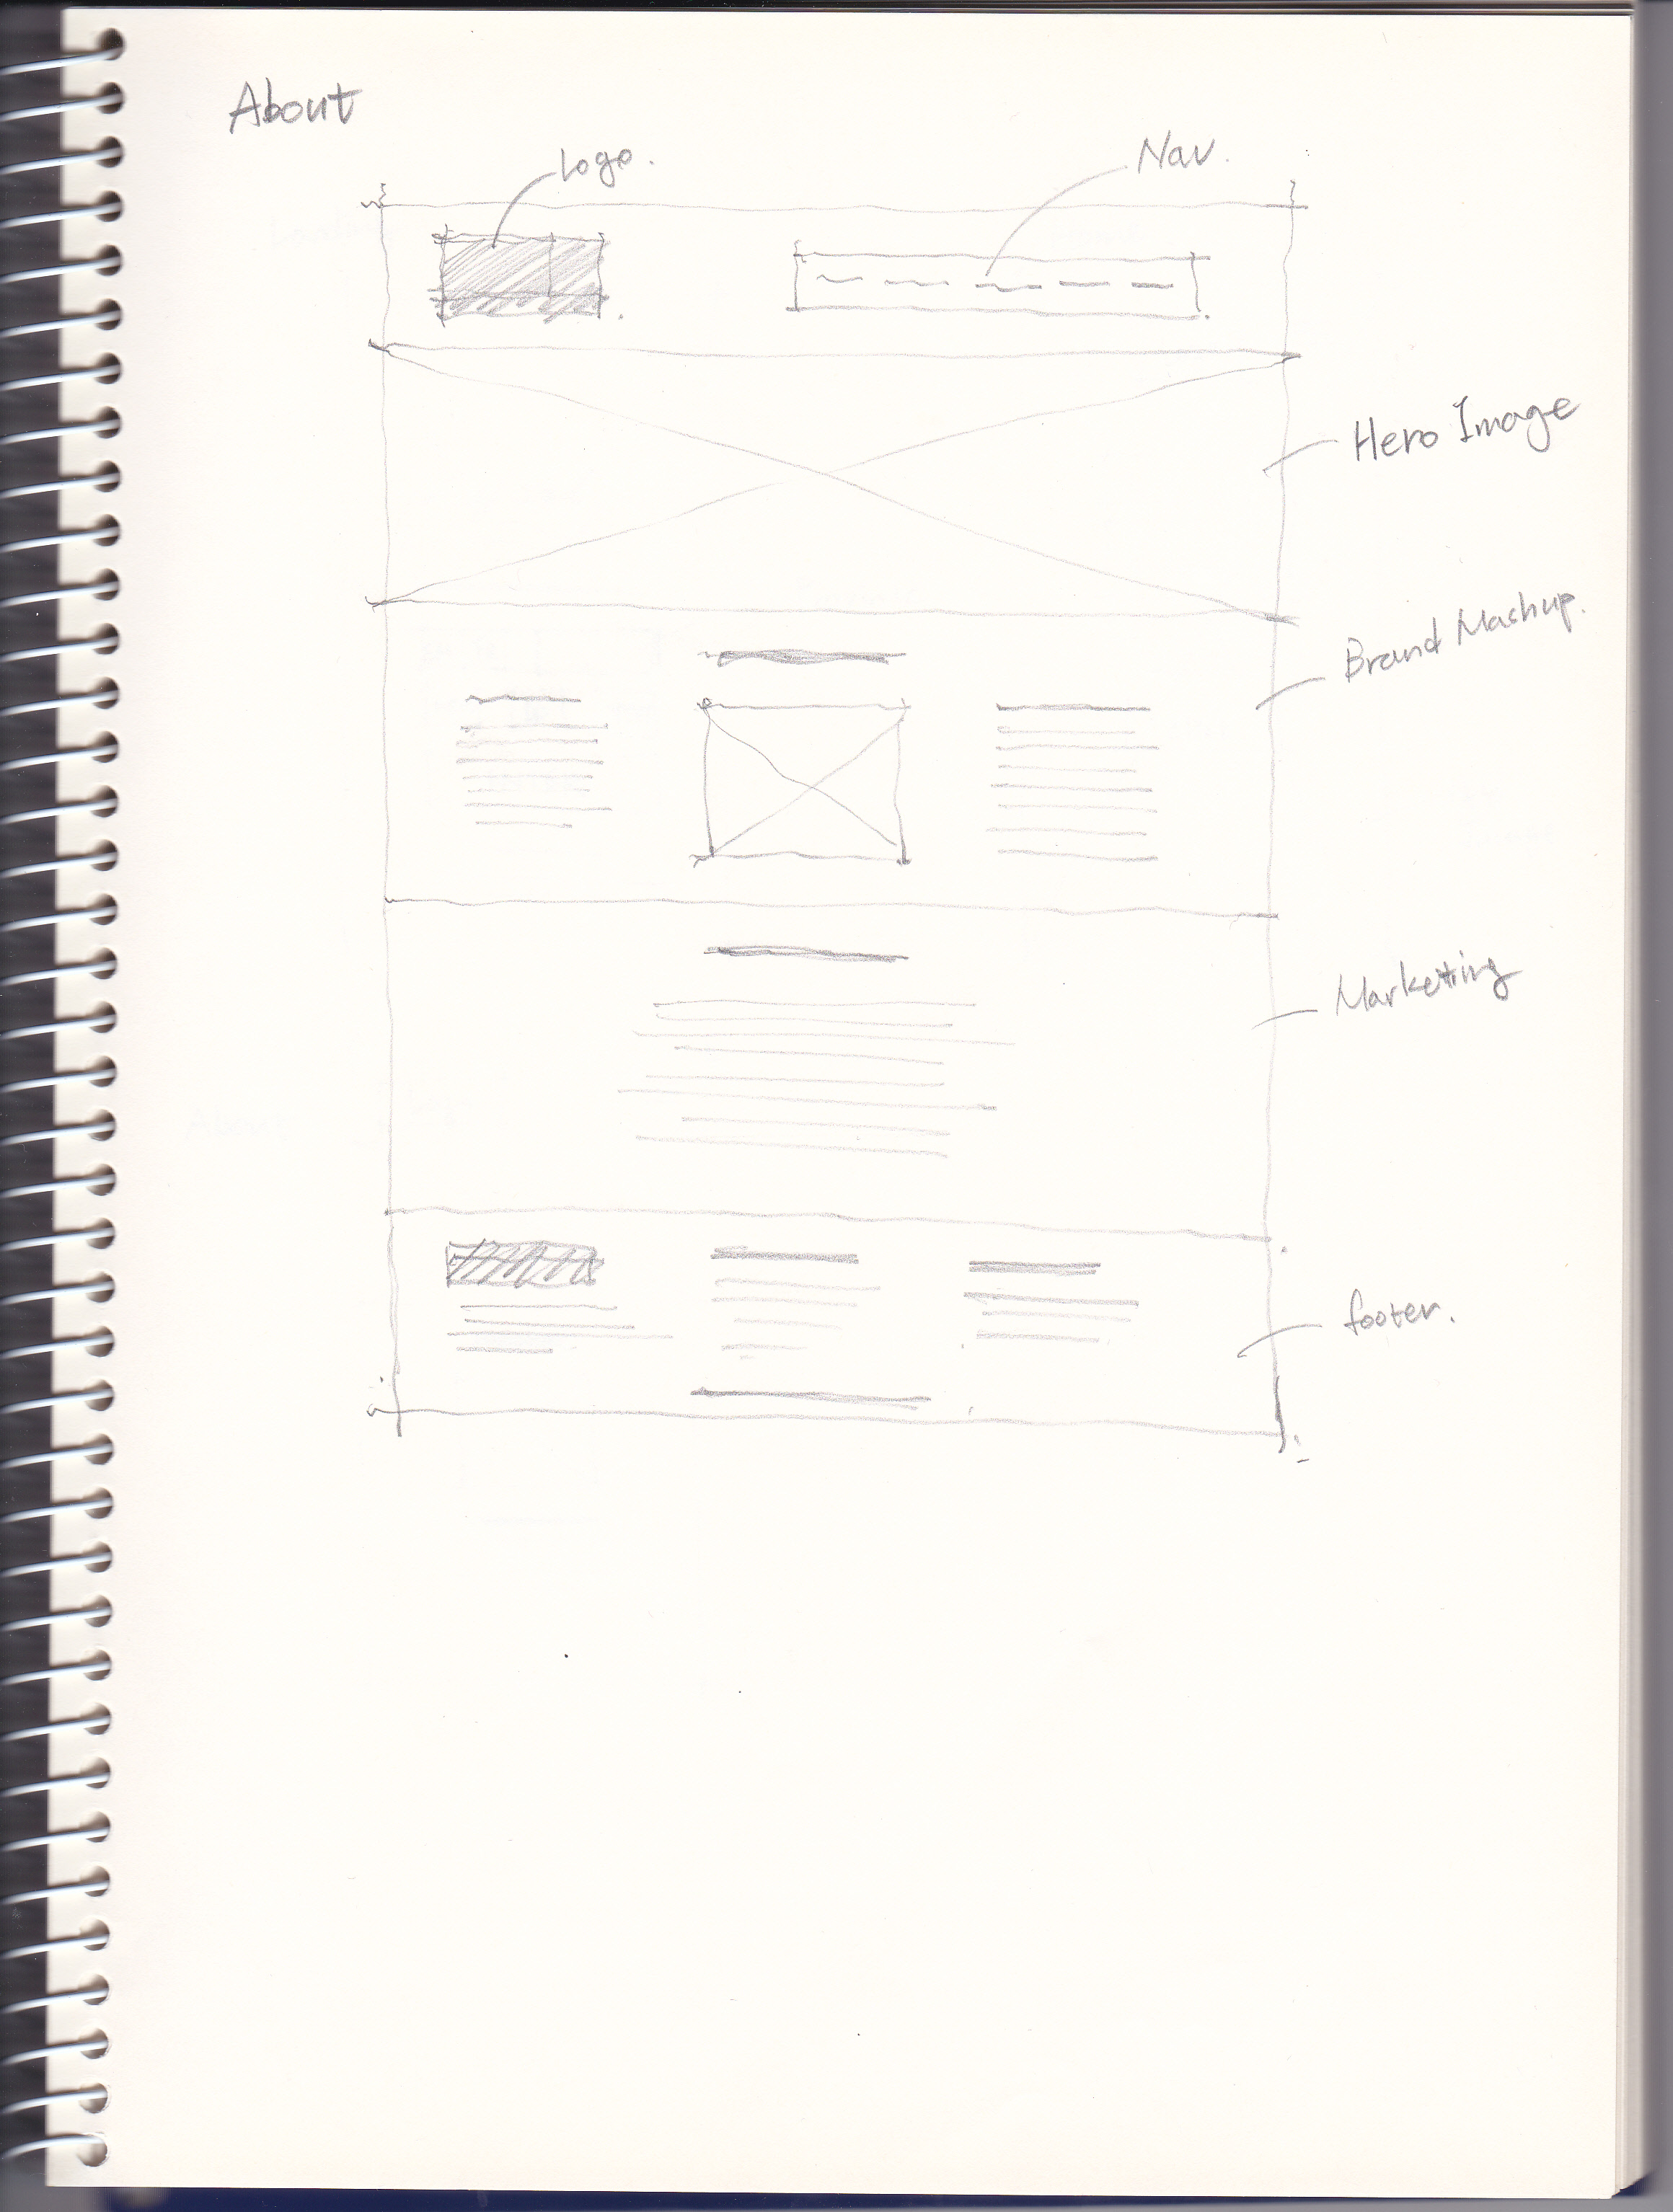 About
Logo.
Nav.
Hero Image
Brand Mashup.
Marketting
footer.